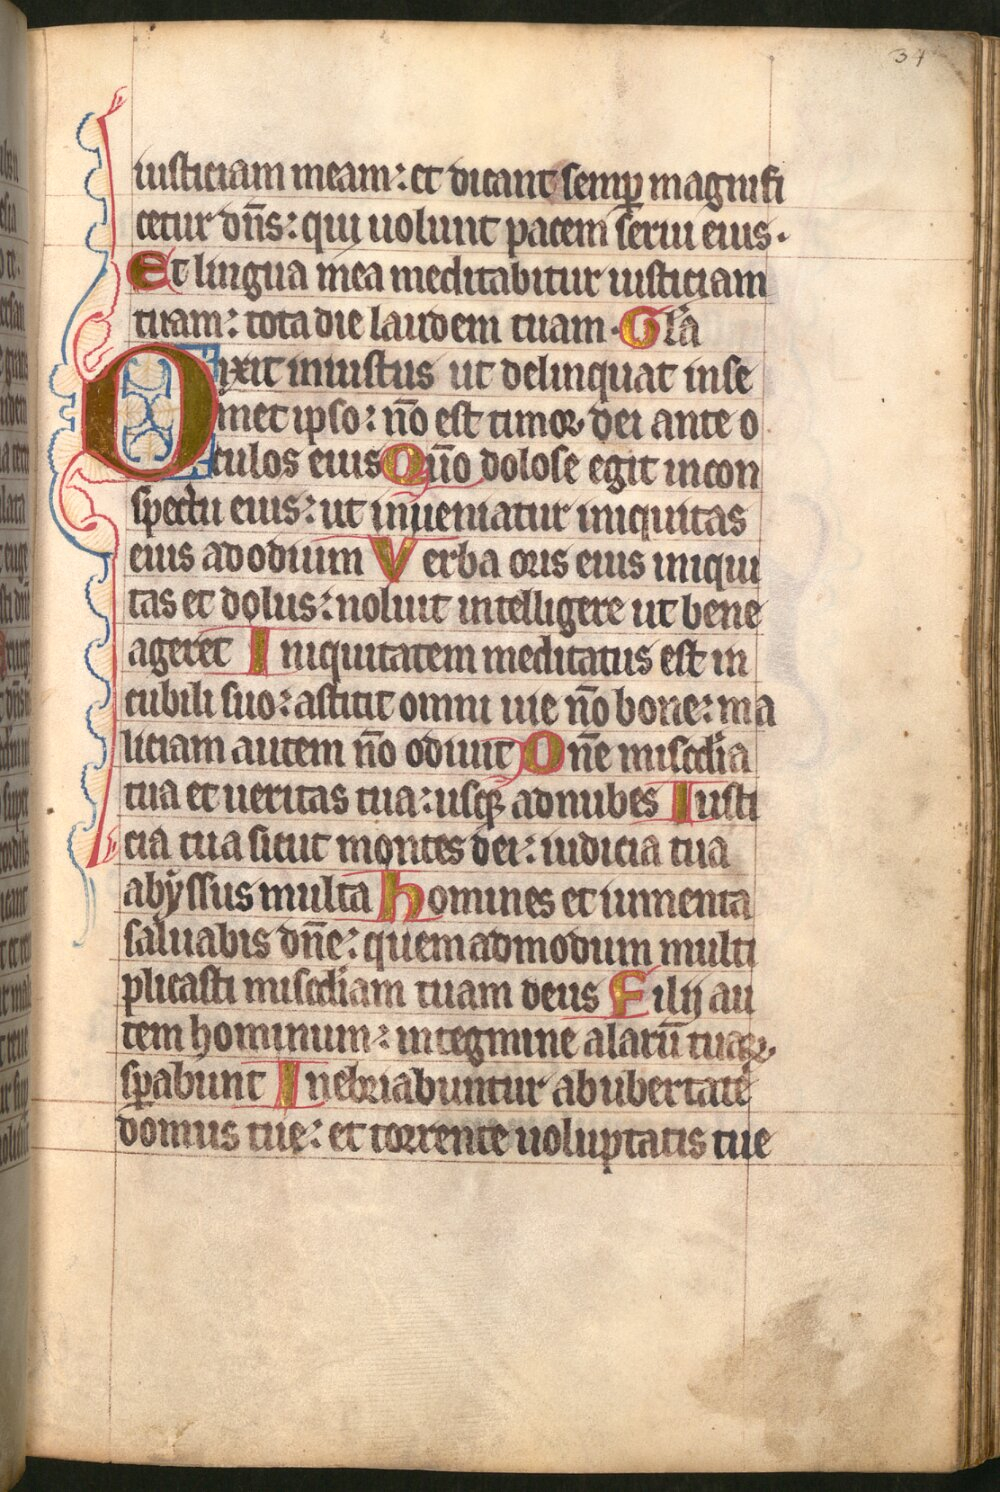 37
iusticiam meam: et dicant semp magnifi
cetur dn̄s: qui uolunt pacem serui eius.
Et lingua mea meditabitur iusticiam
tuam: tota die laudem tuam. Gl̄a
Dixit iniustus ut delinquat in se
met ipso: nō est timor dei ante o
culos eius Qūo dolose egit in con
spectu eius: ut inueniatur iniquitas
eius ad odium Verba oris eius iniqui
tas et dolus: noluit intelligere ut bene
ageret Iniquitatem meditatus est in
cubili suo: astitit omni uie nō bone: ma
liciam autem nō odiuit Dn̄e misc̄dia
tua et ueritas tua: usqꝫ ad nubes Iusti
cia tua sicut montes dei: iudicia tua
abyssus multa Homines et iumenta
saluabis dn̄e: quemadmodum multi
plicasti misc̄diam tuam deus Filij au
tem hominum: in tegmine alarū tuaꝝ
sꝑabunt Inebriabuntur ab ubertate
domus tue: et torrente uoluptatis tue